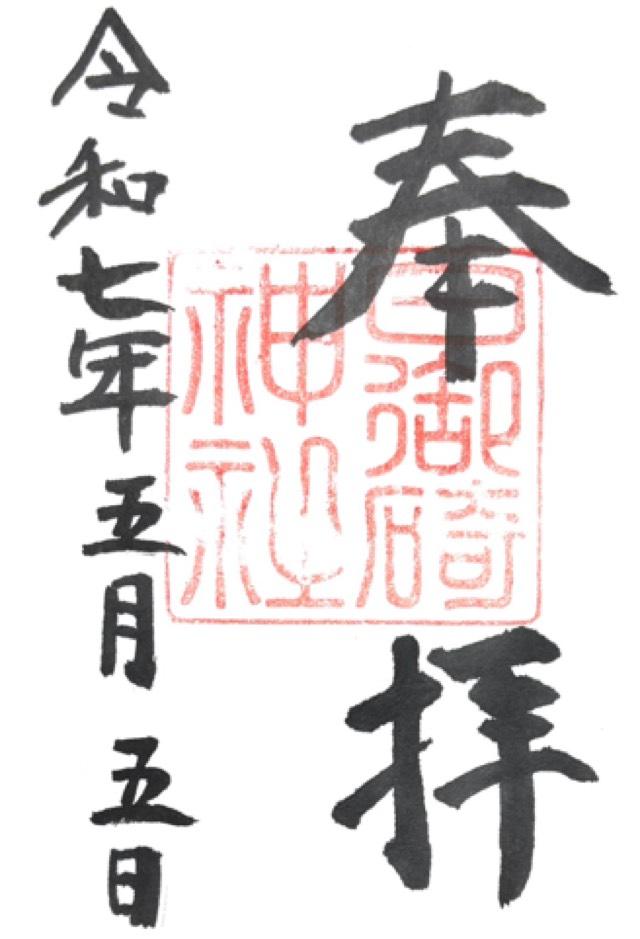 奉拝
日御碕
神社
令和七年五月五日